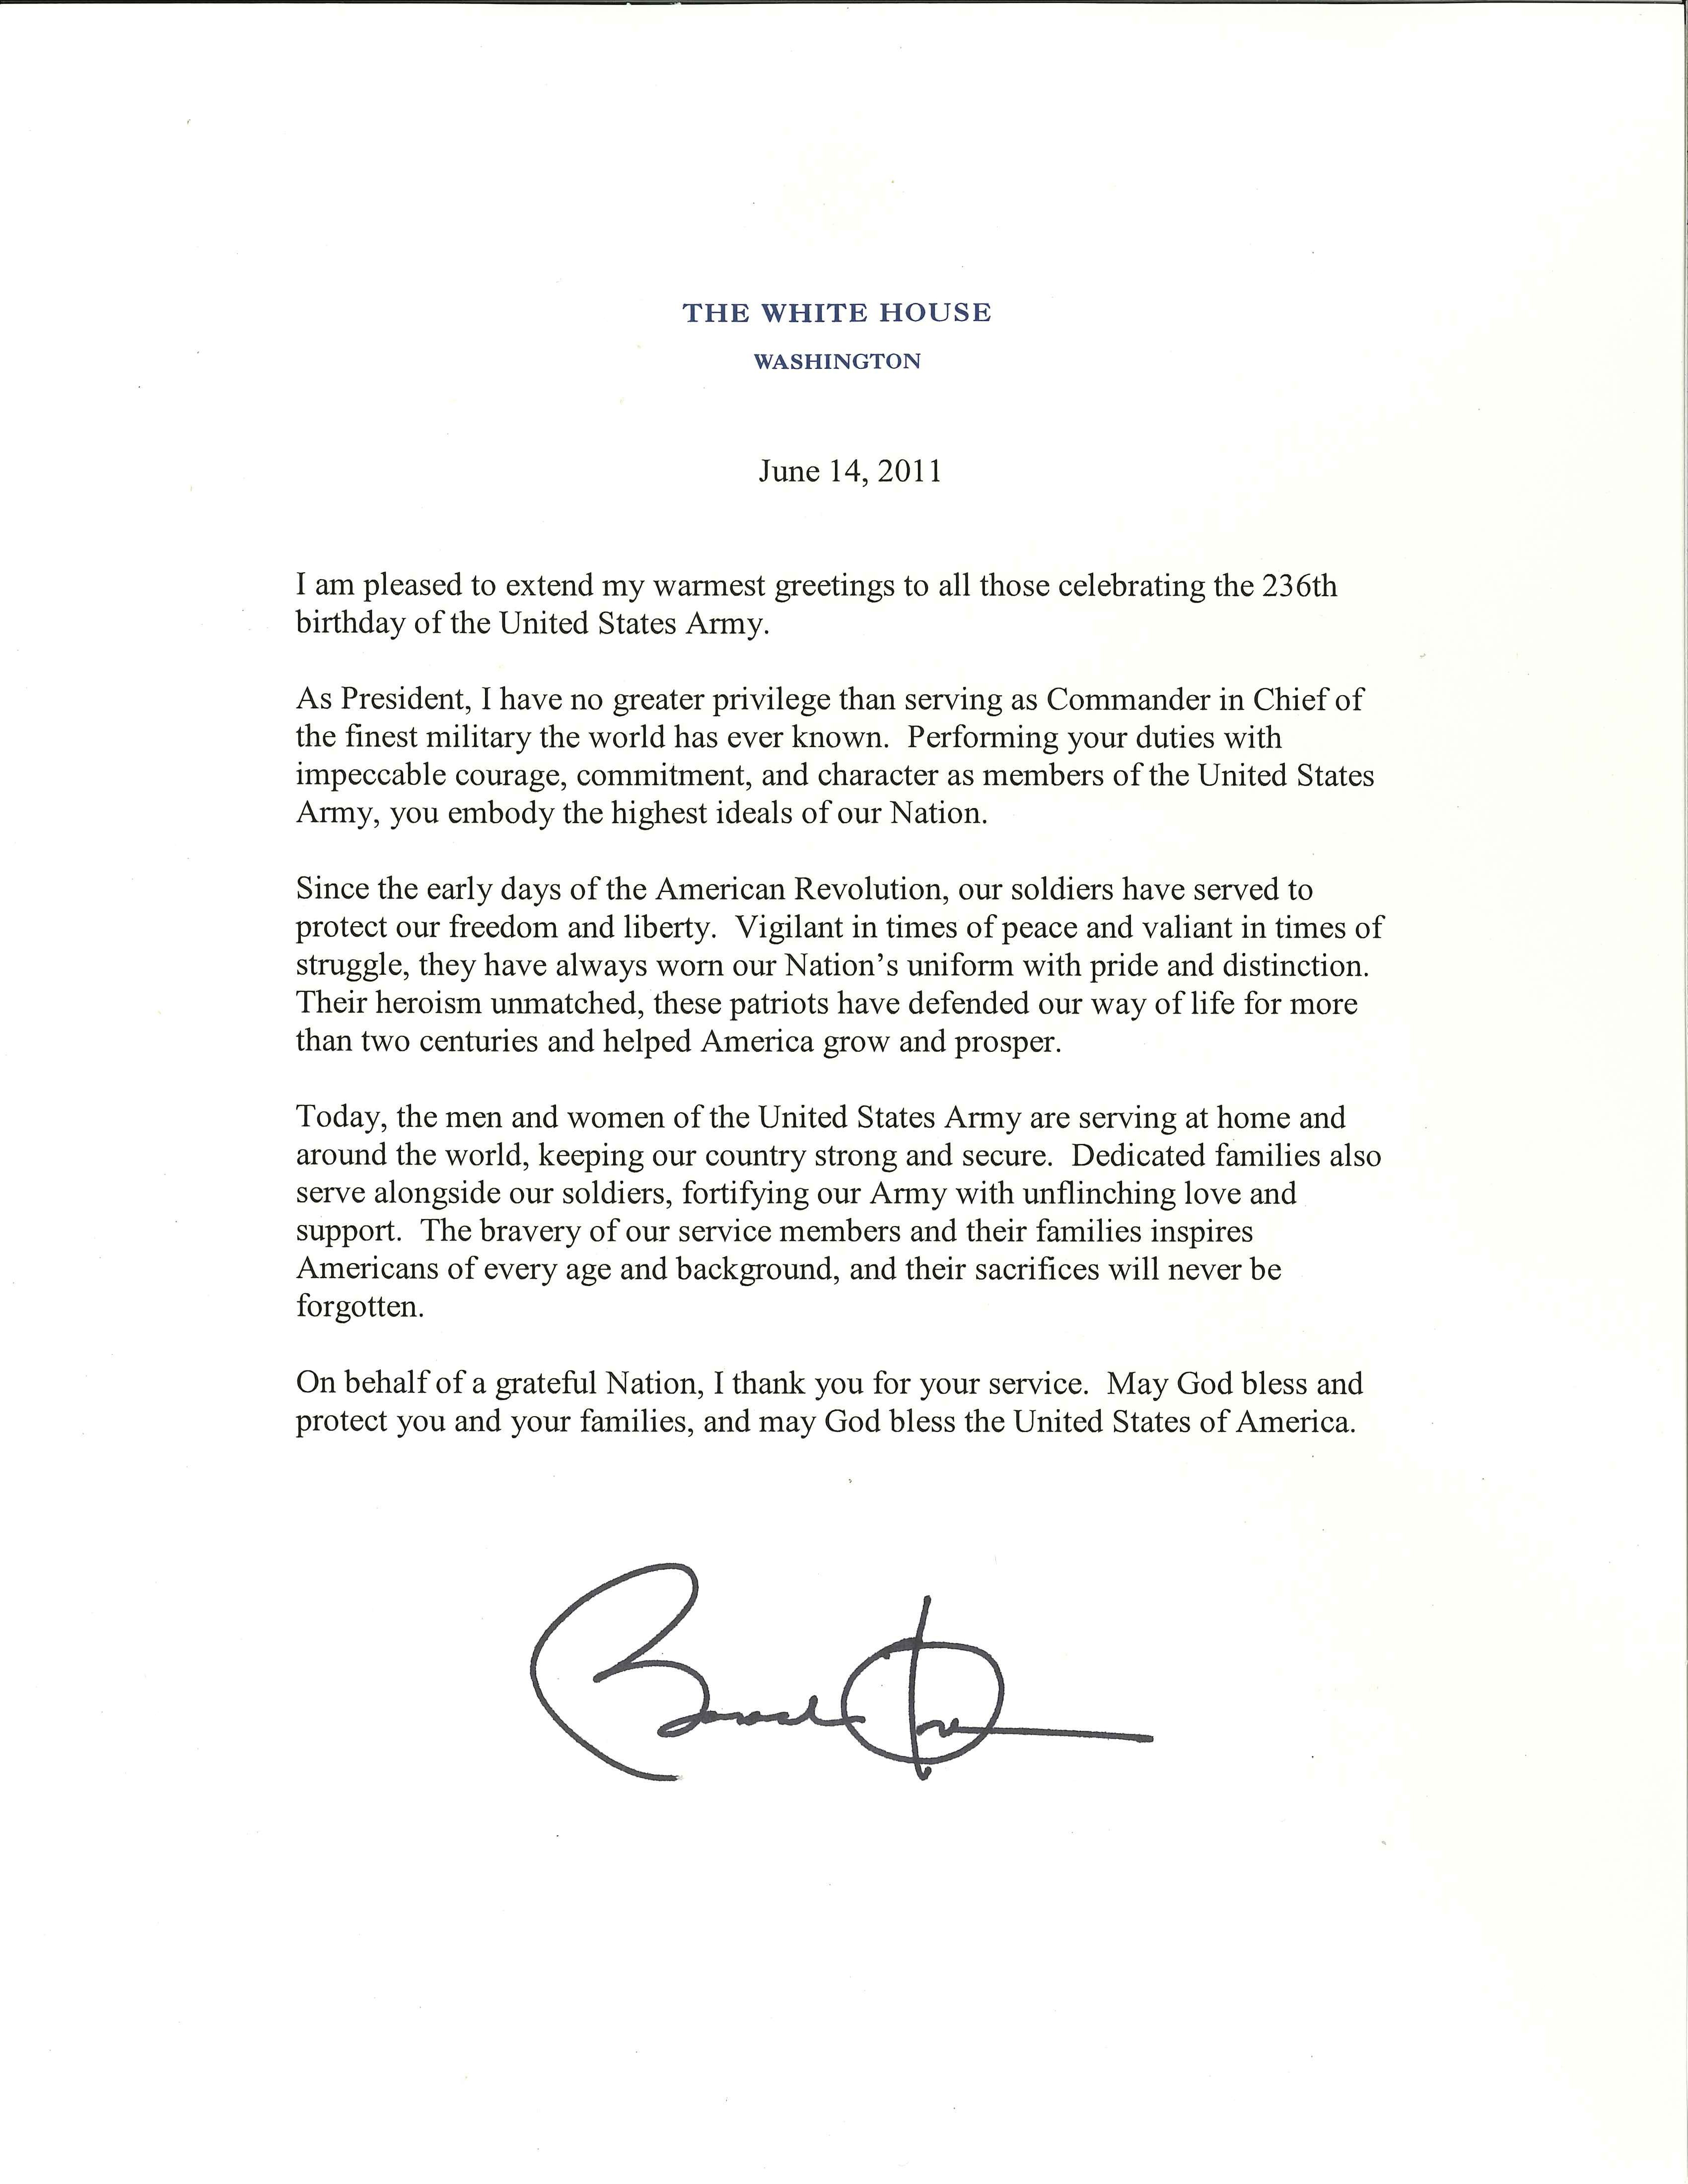 THE WHITE HOUSE
WASHINGTON
June 14, 2011
I am pleased to extend my warmest greetings to all those celebrating the 236th
birthday of the United States Army.
As President, I have no greater privilege than serving as Commander in Chief of
the finest military the world has ever known.  Performing your duties with
impeccable courage, commitment, and character as members of the United States
Army, you embody the highest ideals of our Nation.
Since the early days of the American Revolution, our soldiers have served to
protect our freedom and liberty.  Vigilant in times of peace and valiant in times of
struggle, they have always worn our Nation’s uniform with pride and distinction.
Their heroism unmatched, these patriots have defended our way of life for more
than two centuries and helped America grow and prosper.
Today, the men and women of the United States Army are serving at home and
around the world, keeping our country strong and secure.  Dedicated families also
serve alongside our soldiers, fortifying our Army with unflinching love and
support.  The bravery of our service members and their families inspires
Americans of every age and background, and their sacrifices will never be
forgotten.
On behalf of a grateful Nation, I thank you for your service.  May God bless and
protect you and your families, and may God bless the United States of America.